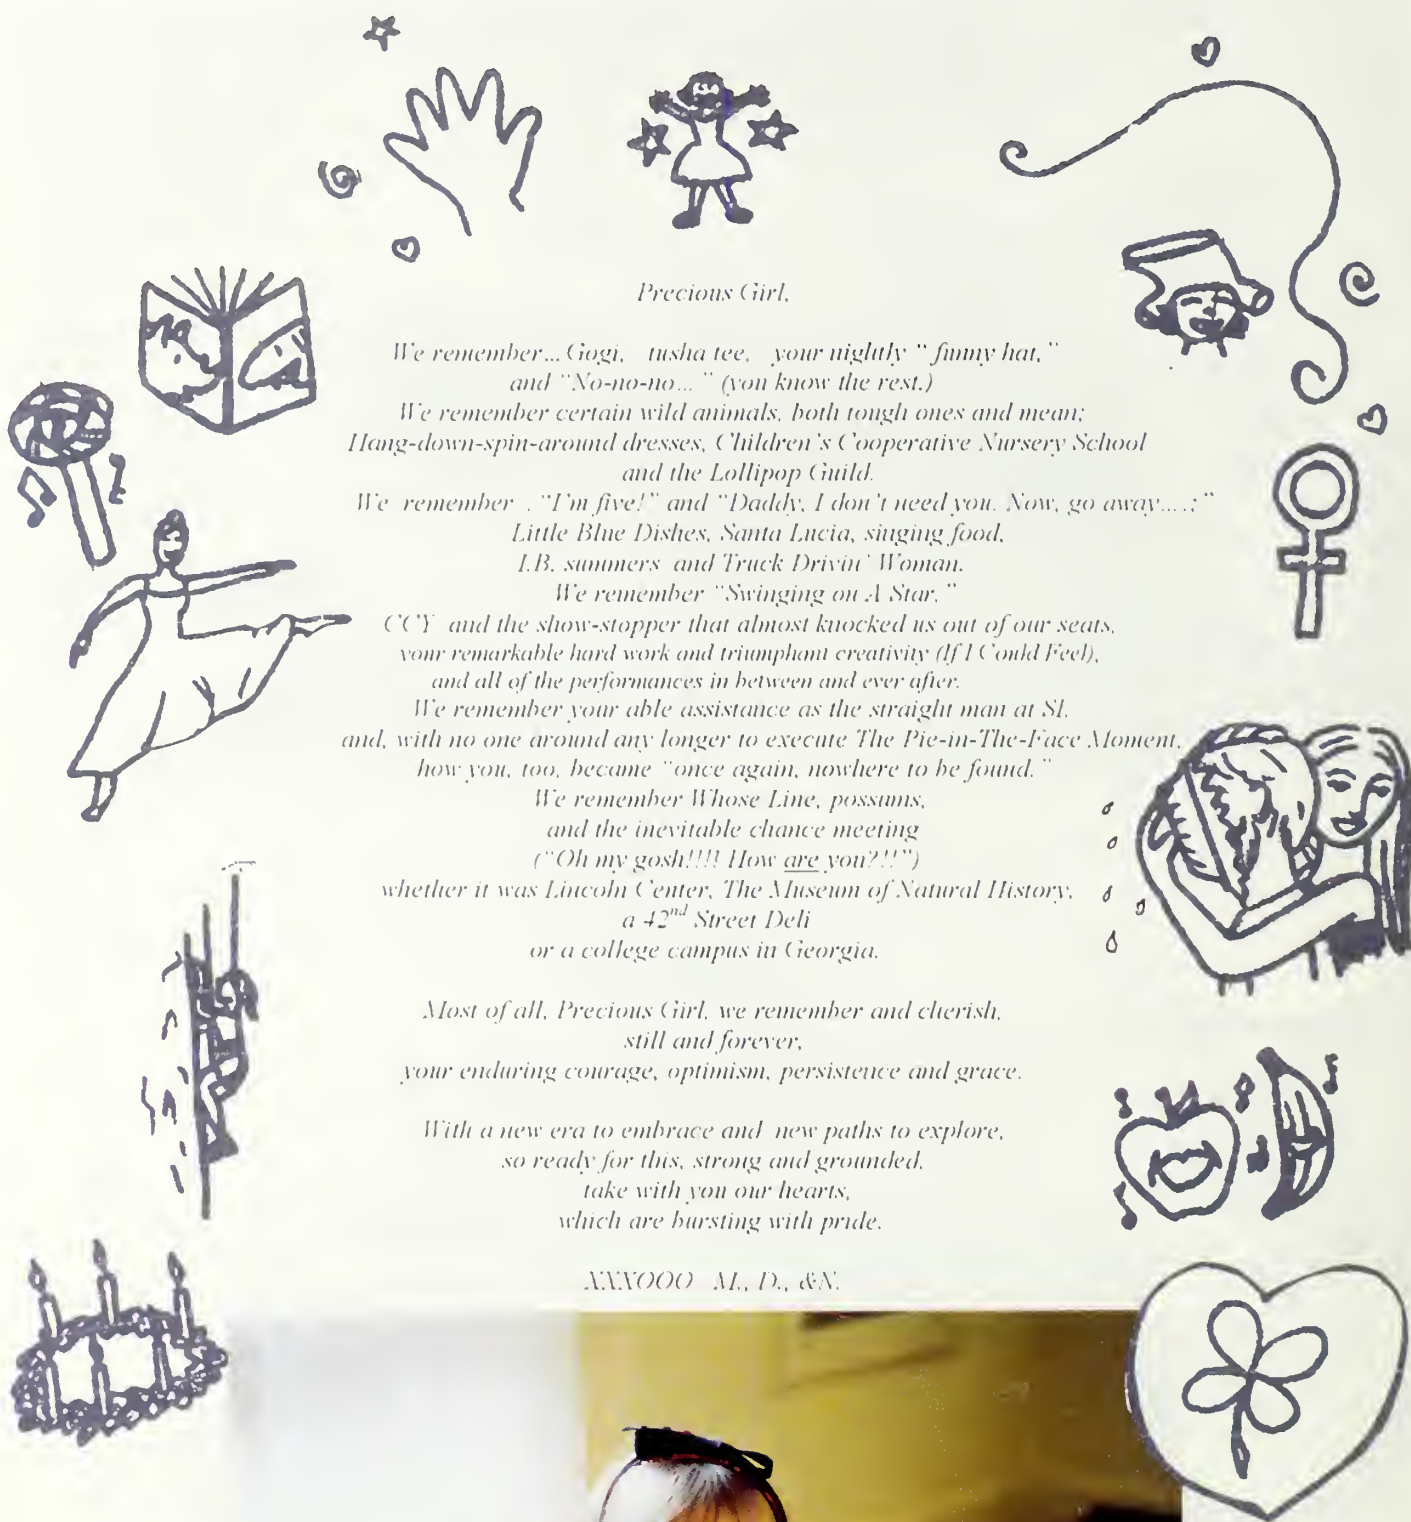 Precious Girl,
We remember... Gogi, tusha tee, your nightly " funny hat,"
and "No-no-no... " (you know the rest.)
We remember certain wild animals, both tough ones and mean;
Hang-down-spin-around dresses, Children's Cooperative Nursery School
and the Lollipop Guild.
We remember . "I'm five!" and "Daddy, I don't need you. Now, go away....;"
Little Blue Dishes, Santa Lucia, singing food,
I.B. summers and Truck Drivin' Woman.
We remember "Swinging on A Star,"
CCY and the show-stopper that almost knocked us out of our seats,
your remarkable hard work and triumphant creativity (If I Could Feel),
and all of the performances in between and ever after.
We remember your able assistance as the straight man at SI,
and, with no one around any longer to execute The Pie-in-The-Face Moment,
how you, too, became "once again, nowhere to be found."
We remember Whose Line, possums,
and the inevitable chance meeting
("Oh my gosh!!!! How are you?!!")
whether it was Lincoln Center, The Museum of Natural History,
a 42nd Street Deli
or a college campus in Georgia.
Most of all, Precious Girl, we remember and cherish,
still and forever,
your enduring courage, optimism, persistence and grace.
With a new era to embrace and new paths to explore,
so ready for this, strong and grounded,
take with you our hearts,
which are bursting with pride.
XXXOOO M., D., &N.